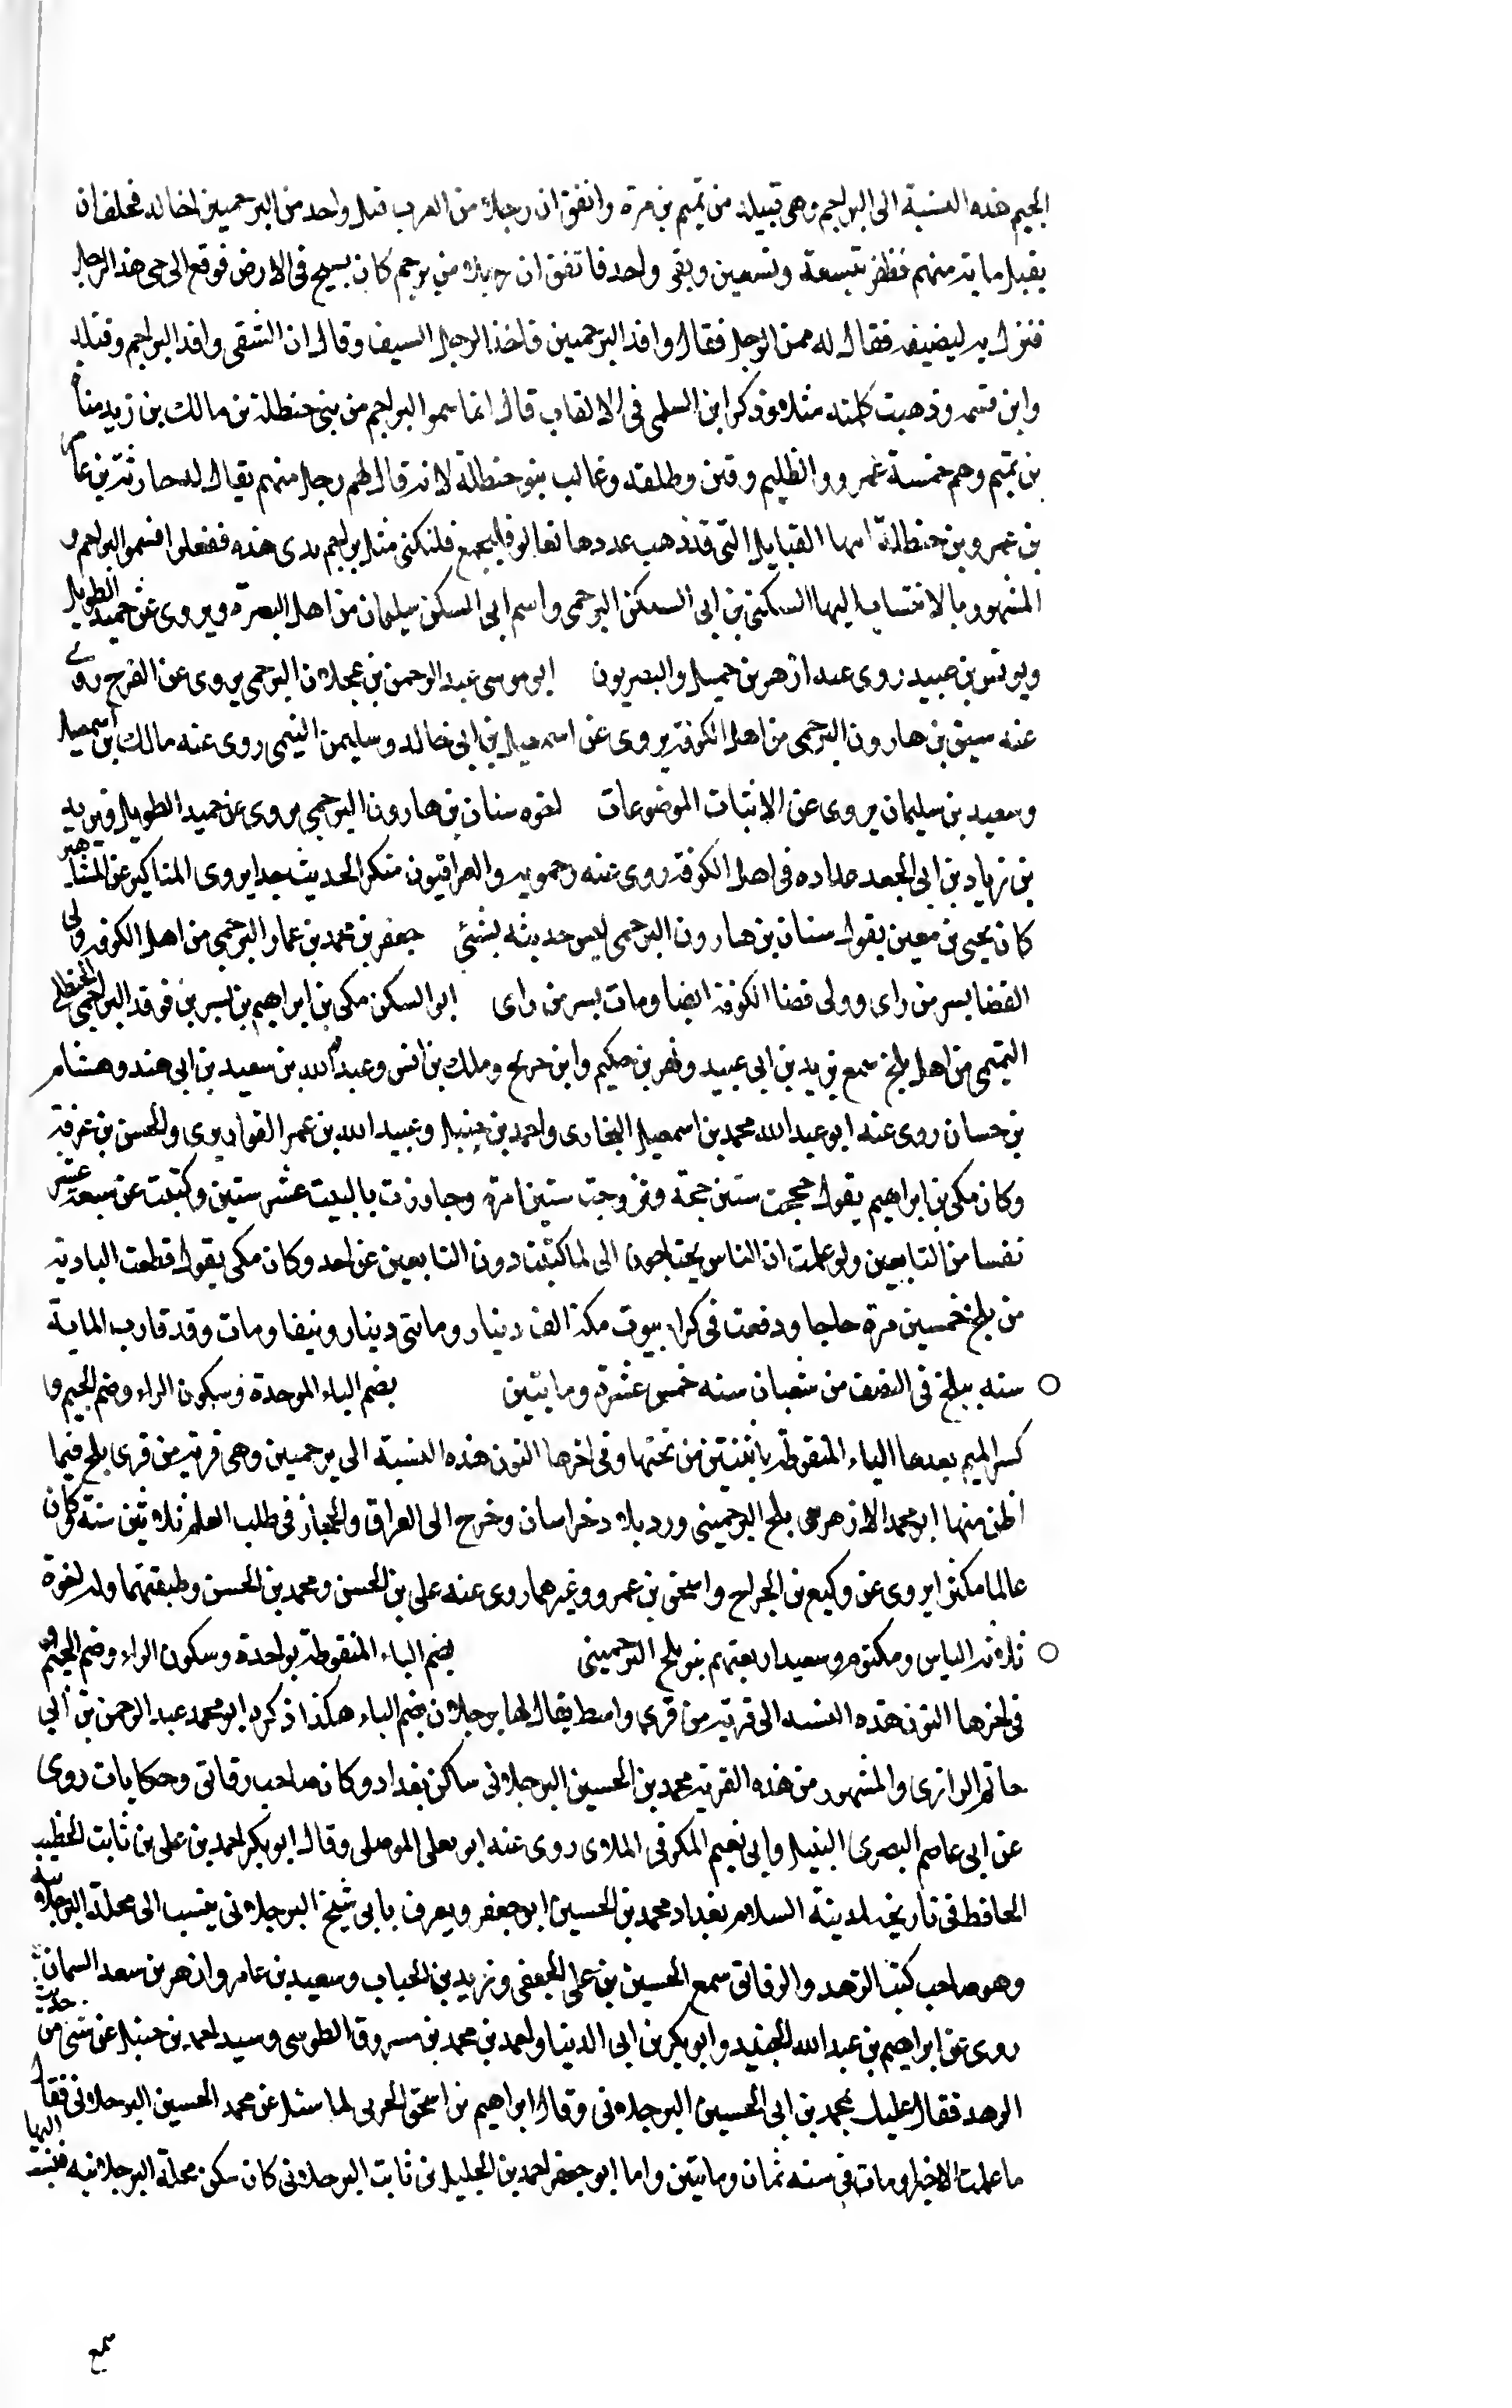 الجيم هذه النسبة الى البراجم وهى قبيلة من تميم بن مرة واتفق ان رجلا من العرب قتل واحد من البرجميين اخا له فحلف ان
يقتل ماية منهم فظفر بتسعة وتسعين وبقى واحد فاتفق ان رجلا من برجم كان يسيح فى الارض فوقع الى حى هذا الرجل
فنزل به ليضيفه فقال له ممن الرجل فقال وافد البرجميين فاخذ الرجل السيف وقال ان الشقى وافد البراجم وقتله
وابن قسمه وذهبت كلمته مثلا وذكر ابن السلمى فى الالقاب قال انما سموا البراجم من بنى حنظلة بن مالك بن زيد مناة
بن تميم وهم خمسة عمرو والظليم وقين وطلقه وغالب بنو حنظلة لانه قال لهم رجل منهم يقال له حارثة بن عامر
بن عمرو بن حنظلة ايها القبايل التى قد ذهب عددها تعالوا فليجمع فلنكن مثل براجم يدى هذه ففعلوا فسموا البراجم و
المشهور بالانتساب اليها السكن بن ابى السكن البرجمى واسم ابى السكن سليمان من اهل البصرة ويروى عن حميد الطويل
ويونس بن عبيد روى عنه ازهر بن جميل والبصريون ابو موسى عبد الرحمن بن عجلان البرجمى يروى عن الفرج روى
عنه سيف بن هارون البرجمى من اهل الكوفة يروى عن اسمعيل بن ابى خالد وسليمن التيمى روى عنه مالك بن اسمعيل
وسعيد بن سليمان يروى عن الاثبات الموضوعات اخوه سنان بن هارون البرجمى يروى عن حميد الطويل ويزيد
بن زياد بن ابى الجعد عداده فى اهل الكوفة روى عنه رحمويه والعراقيون منكر الحديث جدا يروى المناكير عن المشاهير
كان يحيى بن معين يقول سنان بن هارون البرجمى ليس حديثه بشئي جعفر بن محمد بن عمار البرجمى من اهل الكوفة ولى
القضا بسر من راى وولى قضا الكوفة ايضا ومات بسر من راى ابو السكن مكى بن ابراهيم بن بسر بن فرقد البراجمى الحنظلى
التميمى من اهل بلخ سمع يزيد بن ابى عبيد وبهز بن حكيم وابن جريج وملك بن انس وعبد الله بن سعيد بن ابى هند وهشام
بن حسان روى عنه ابو عبد الله محمد بن اسمعيل البخارى واحمد بن حنبل وعبيد الله بن عمر القواريرى والحسن بن عرفة
وكان مكى بن ابراهيم يقول حججت ستين حجة وتزوجت ستين امرة وجاورت بالبيت عشر سنين وكتبت عن سبعة عشر
نفسا من التابعين ولو علمت ان الناس يحتاجون الى لما كتبت دون التابعين عن احد وكان مكى يقول قطعت البادية
من بلخ خمسين مرة حاجا ودفعت فى كراء بيوت مكة الف دينار وماىتى دينار ونيفا ومات وقد قارب الماية
سنه ببلخ فى النصف من شعبان سنه خمس عشرة ومايتين بضم الباء الموحدة وسكون الراء وضم الجيم وا
كسر الميم بعدها الياء المنقوطة باثنتين من تحتها وفى اخرها النون هذه النسبة الى برجمين وهى قرية من قرى بلخ فيما
اظن منها ابو محمد الازهر بن بلخ البرجمينى ورد بلاد خراسان وخرج الى العراق والحجاز فى طلب العلم ثلاثين سنة كان
عالما مكثرا يروى عن وكيع بن الجراح واسحق بن عمرو وغيرهما روى عنه على بن الحسن ومحمد بن الحسن وطبقتهما وله اخوة
ثلاثه الياس ومكتوم وسعيد اربعتهم بنو بلخ البرجمينى بضم الباء المنقوطة بواحدة وسكون الراء وضم الجيم و
فى اخرها النون هذه النسبه الى قرية من قرى واسط يقال لها برجلان بضم الباء هكذا ذكره ابو محمد عبد الرحمن بن ابى
حاتم الرازى والمشهور من هذه القرية محمد بن الحسين البرجلانى ساكن بغداد وكان صاحب رقائق وحكايات روى
عن ابى عاصم البصرى النبيل وابى نعيم الكوفى الملاى روى عنه ابو يعلى الموصلى وقال ابو بكر احمد بن على بن ثابت الخطيب
الحافظ فى تاريخه لمدينة السلام بغداد محمد بن الحسين ابو جعفر ويعرف بابى شيخ البرجلانى ينسب الى محلة البرجلانيه
وهو صاحب كتب الزهد والرقائق سمع الحسين بن على الجعفى وزيد بن الحباب وسعيد بن عامر وازهر بن سعد السمان
روى عن ابراهيم بن عبد الله الجنيد وابو بكر بن ابى الدنيا واحمد بن محمد بن مسروق الطوسى وسيد احمد بن حنبل عن شى من حديث
الزهد فقال عليك بمحمد بن ابى الحسين البرجلانى وقال ابراهيم بن اسحق الحربى لما سئل عن محمد الحسين البرجلانى فقال
ما علمت الا خيرا ومات فى سنه ثمان ومايتين واما ابو جعفر احمد بن الخليل بن ثابت البرجلانى كان سكن محلة البرجلانيه فنسب اليها
سمع